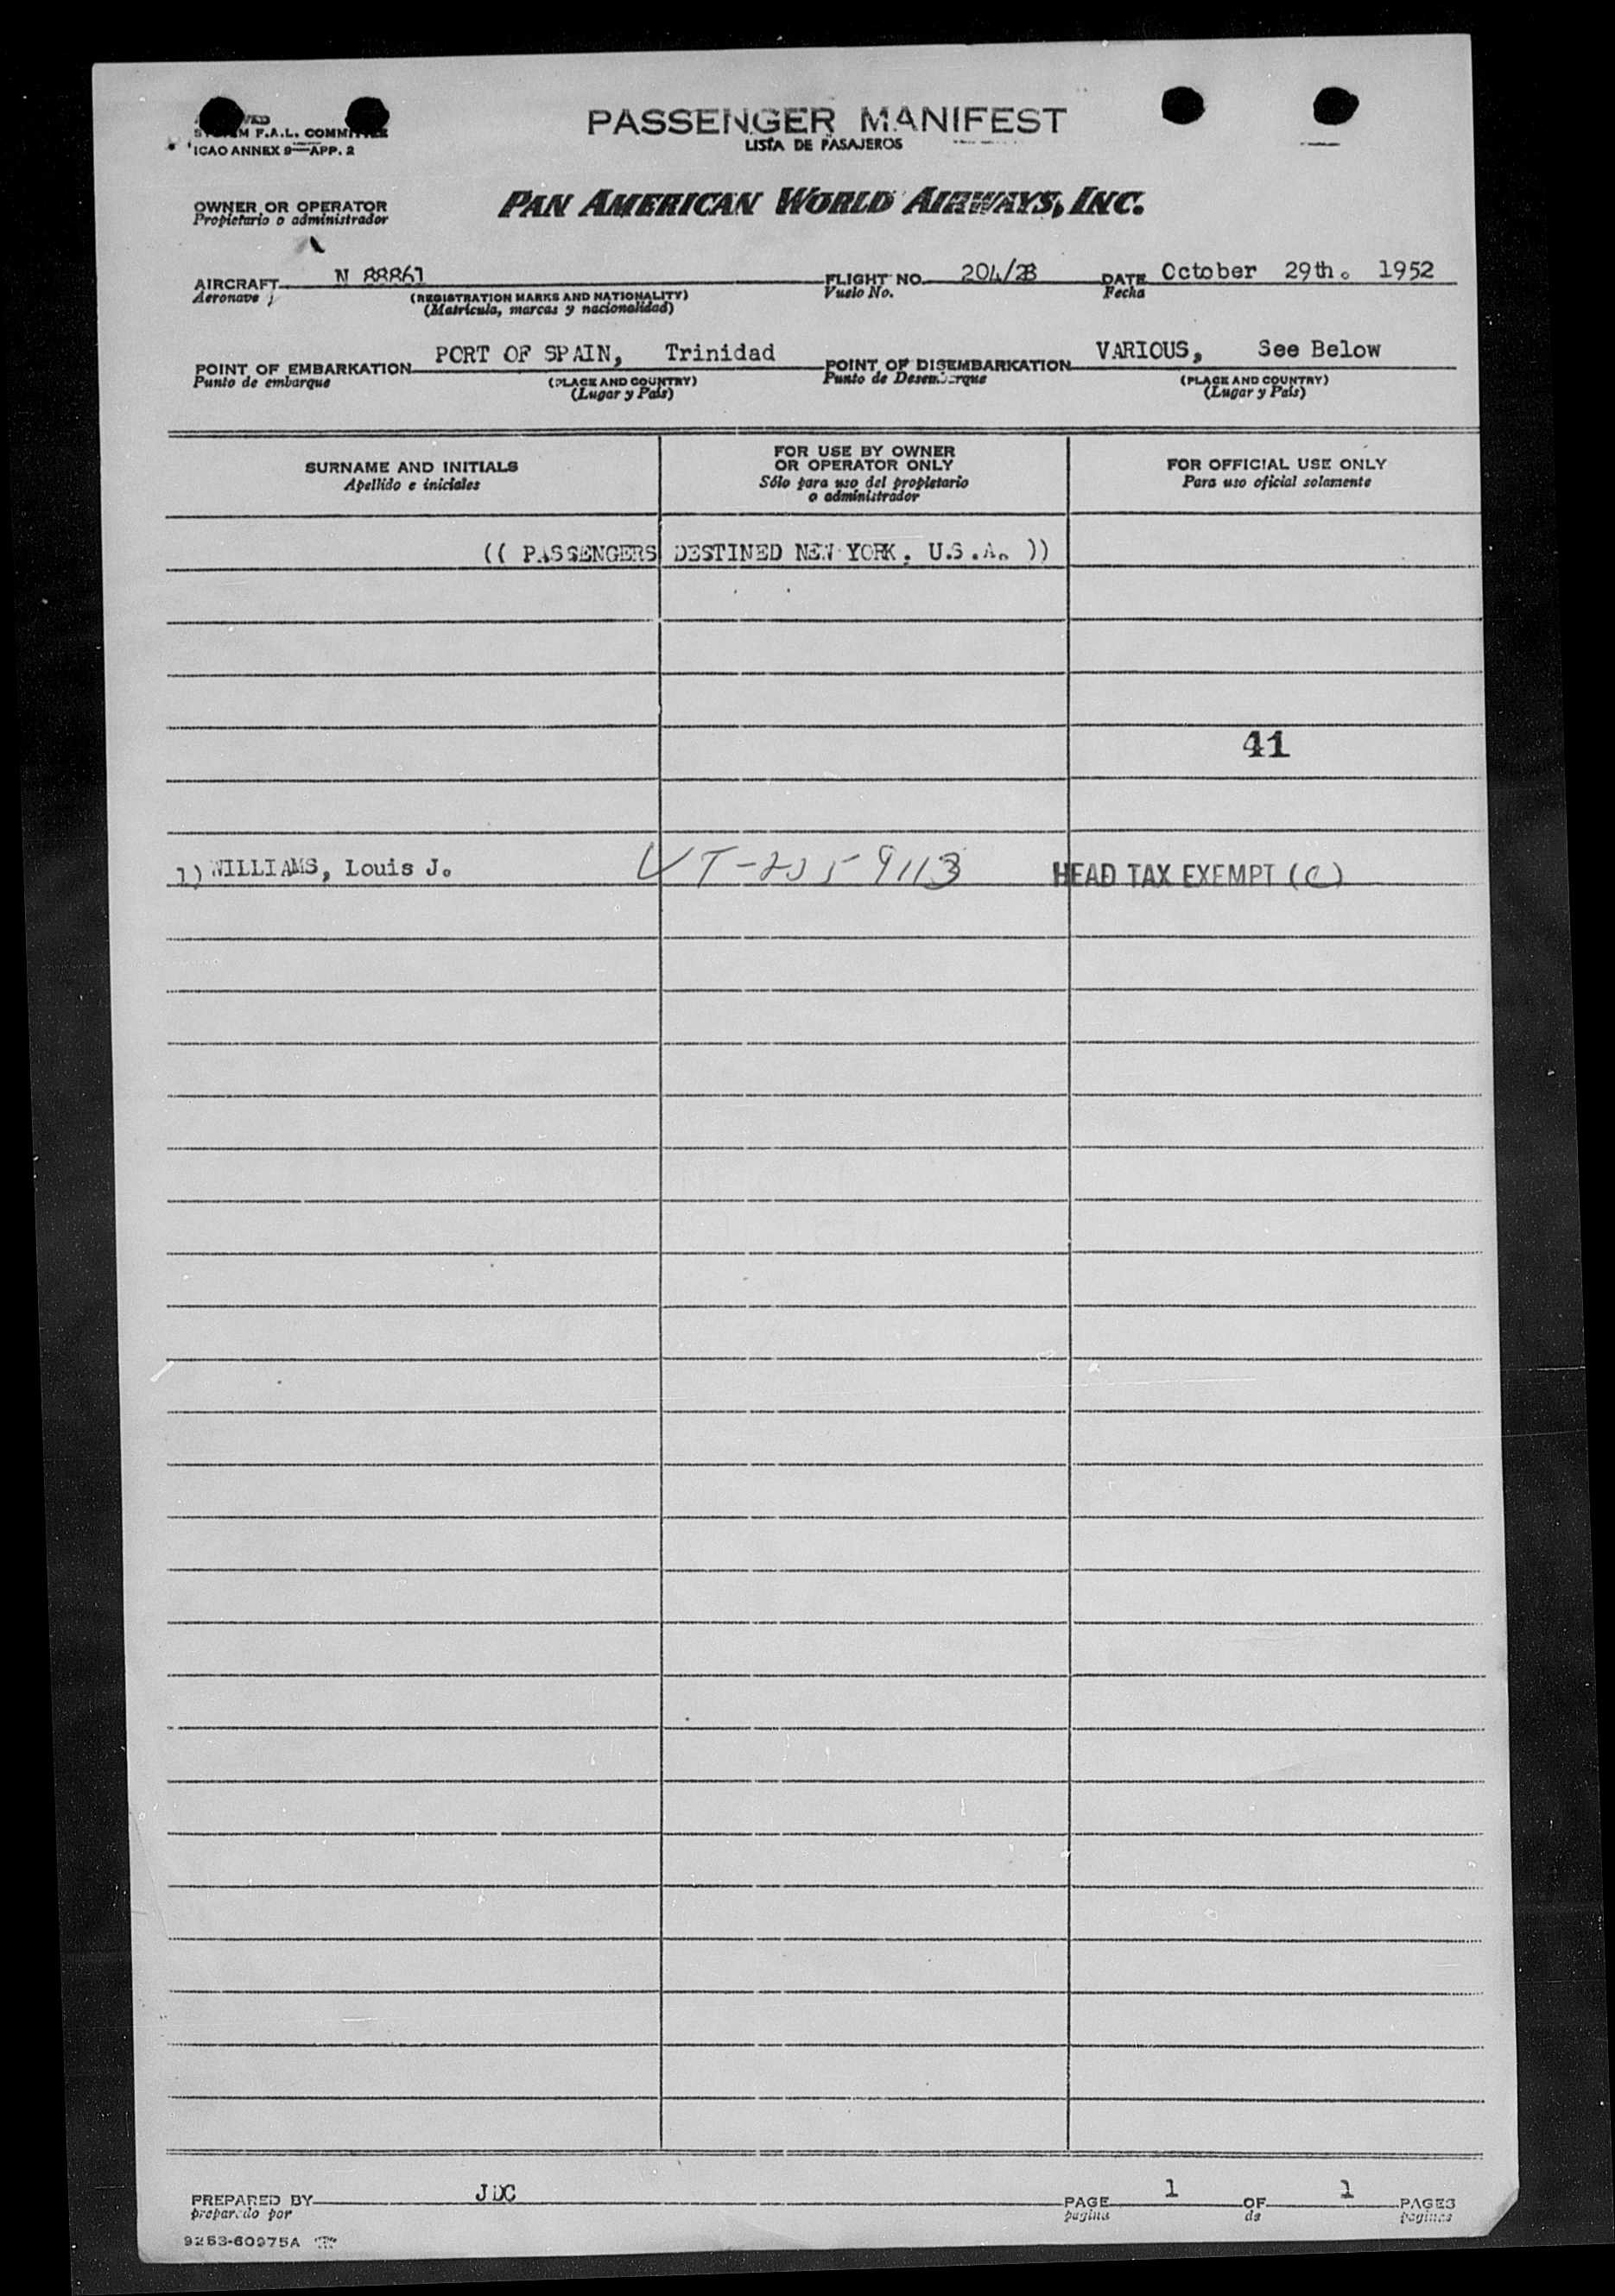 PASSENGER MANIFEST
LISTA DE PASAJEROS
F.A.L. COMMITTEE
ICAO ANNEX 9—APP. 2
OWNER OR OPERATOR
Propietario o administrador
PAN AMERICAN WORLD AIRWAYS, INC.
AIRCRAFT N 88861 FLIGHT NO. 204/28 DATE October 29th. 1952
Aeronave (REGISTRATION MARKS AND NATIONALITY) Vuelo No. Fecha
(Matricula, marcas y nacionalidad)
POINT OF EMBARKATION PORT OF SPAIN, Trinidad POINT OF DISEMBARKATION VARIOUS, See Below
Punto de embarque (PLACE AND COUNTRY) Punto de Desembarque (PLACE AND COUNTRY)
(Lugar y País) (Lugar y País)
SURNAME AND INITIALS
Apellido e iniciales
FOR USE BY OWNER
OR OPERATOR ONLY
Sólo para uso del propietario
o administrador
FOR OFFICIAL USE ONLY
Para uso oficial solamente
(( PASSENGERS DESTINED NEW YORK, U.S.A. ))
41
1) WILLIAMS, Louis J. HEAD TAX EXEMPT (C)
PREPARED BY JDC PAGE 1 OF 1 PAGES
preparado por pagina de paginas
9253-60975A